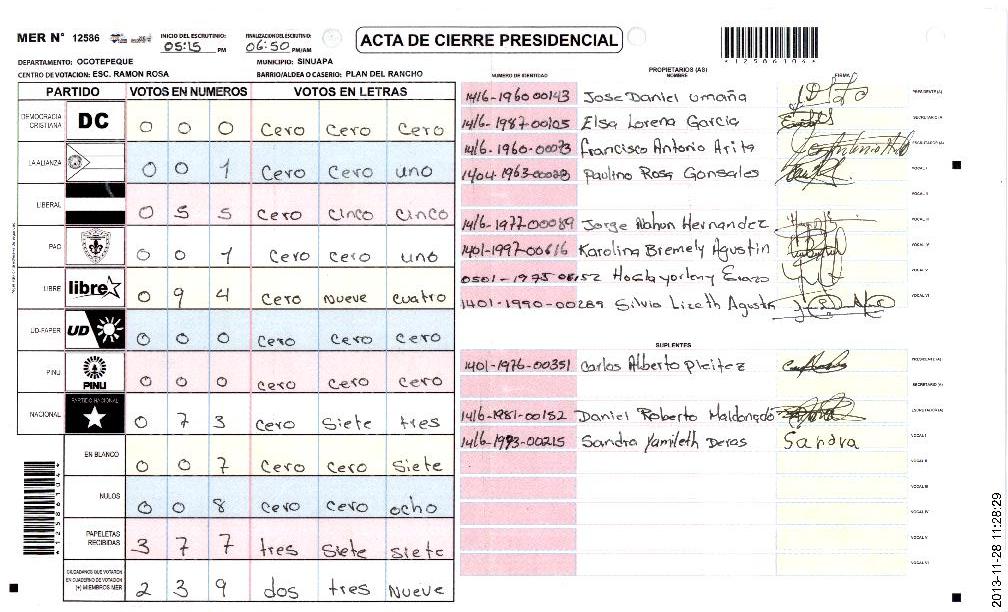 MER N° 12586 INICIO DEL ESCRUTINIO: 05:15 PM FINALIZACION DEL ESCRUTINIO: 06:50 PM/AM ACTA DE CIERRE PRESIDENCIAL
*12586104*
DEPARTAMENTO: OCOTEPEQUE MUNICIPIO: SINUAPA
CENTRO DE VOTACION: ESC. RAMON ROSA BARRIO/ALDEA O CASERIO: PLAN DEL RANCHO
PARTIDO VOTOS EN NUMEROS VOTOS EN LETRAS
DEMOCRACIA CRISTIANA DC 0 0 0 Cero Cero Cero
LA ALIANZA 0 0 1 Cero Cero uno
LIBERAL 0 5 5 Cero Cinco Cinco
PAC 0 0 1 Cero Cero uno
LIBRE libre 0 9 4 Cero Nueve cuatro
UD-FAPER UD 0 0 0 Cero Cero Cero
PINU PINU 0 0 0 Cero Cero Cero
NACIONAL PARTIDO NACIONAL 0 7 3 Cero Siete tres
EN BLANCO 0 0 7 Cero Cero Siete
NULOS 0 0 8 Cero Cero ocho
PAPELETAS RECIBIDAS 3 7 7 tres Siete siete
CIUDADANOS QUE VOTARON EN CUADERNO DE VOTACION (+) MIEMBROS MER 2 3 9 dos tres Nueve
*12586104*
PROPIETARIOS (AS)
NUMERO DE IDENTIDAD NOMBRE FIRMA
1416-1960-00143 Jose Daniel umaña PRESIDENTE(A)
1416-1987-00105 Elsa Lorena Garcia SECRETARIO(A)
1416-1960-00073 francisco Antonio Arita ESCRUTADOR(A)
1404-1963-00023 Paulino Rosa Gonsales VOCAL I
VOCAL II
1416-1977-00089 Jorge Nahun Hernandez VOCAL III
1401-1997-00616 Karolina Bremely Agustin VOCAL IV
VOCAL V
1401-1990-00289 Silvia Lizeth Agustin VOCAL VI
SUPLENTES
1401-1976-00351 Carlos Alberto Pleitez PRESIDENTE(A)
SECRETARIO(A)
1416-1981-00152 Daniel Roberto Maldonado ESCRUTADOR(A)
1416-1993-00215 Sandra Yamileth Deras Sandra VOCAL I
VOCAL II
VOCAL III
VOCAL IV
VOCAL V
VOCAL VI
2013-11-28 11:28:29